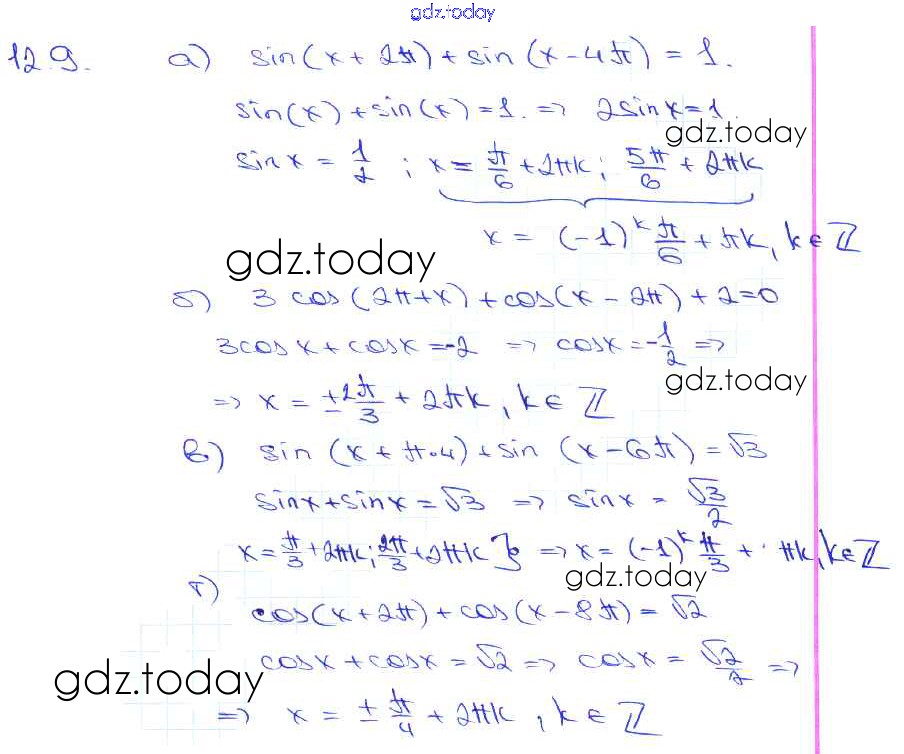 gdz.today
12.9. а) sin(x + 2π) + sin(x - 4π) = 1.
sin(x) + sin(x) = 1. => 2sinx = 1
gdz.today
sinx = 1/2 ; x = π/6 + 2πk; 5π/6 + 2πk
x = (-1)^k π/6 + πk, k ∈ ℤ
gdz.today
б) 3 cos(2π+x) + cos(x - 2π) + 2 = 0
3cosx + cosx = -2 => cosx = -1/2 =>
gdz.today
=> x = ±2π/3 + 2πk, k ∈ ℤ
в) sin (x + π·4) + sin (x - 6π) = √3
sinx + sinx = √3 => sinx = √3/2
x = π/3 + 2πk; 2π/3 + 2πk => x = (-1)^k π/3 + πk, k ∈ ℤ
gdz.today
г)
cos(x + 2π) + cos(x - 8π) = √2
cosx + cosx = √2 => cosx = √2/2 =>
gdz.today
=> x = ± π/4 + 2πk, k ∈ ℤ